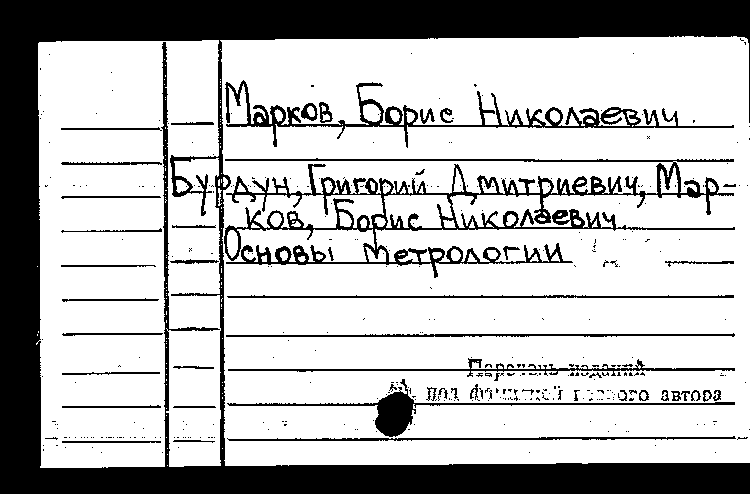 Марков, Борис Николаевич.
Бурдун, Григорий Дмитриевич, Мар-
ков, Борис Николаевич.
Основы метрологии
Перечень изданий
под фамилией первого автора